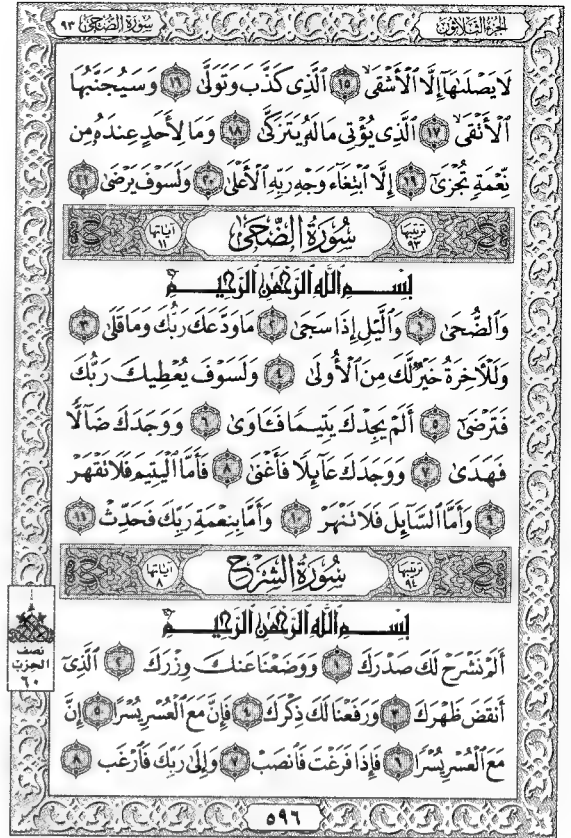 الجزء الثلاثون سورة الضحى ٩٣
لَا يَصْلَىٰهَآ إِلَّا ٱلْأَشْقَى ١٥ ٱلَّذِى كَذَّبَ وَتَوَلَّىٰ ١٦ وَسَيُجَنَّبُهَا
ٱلْأَتْقَى ١٧ ٱلَّذِى يُؤْتِى مَالَهُۥ يَتَزَكَّىٰ ١٨ وَمَا لِأَحَدٍ عِندَهُۥ مِن
نِّعْمَةٍ تُجْزَىٰٓ ١٩ إِلَّا ٱبْتِغَآءَ وَجْهِ رَبِّهِ ٱلْأَعْلَىٰ ٢٠ وَلَسَوْفَ يَرْضَىٰ ٢١
ترتيبها ٩٣ سُورَةُ الضُّحَىٰ آياتها ١١
بِسْمِ ٱللَّهِ ٱلرَّحْمَٰنِ ٱلرَّحِيمِ
وَٱلضُّحَىٰ ١ وَٱلَّيْلِ إِذَا سَجَىٰ ٢ مَا وَدَّعَكَ رَبُّكَ وَمَا قَلَىٰ ٣
وَلَلْـَٔاخِرَةُ خَيْرٌ لَّكَ مِنَ ٱلْأُولَىٰ ٤ وَلَسَوْفَ يُعْطِيكَ رَبُّكَ
فَتَرْضَىٰٓ ٥ أَلَمْ يَجِدْكَ يَتِيمًا فَـَٔاوَىٰ ٦ وَوَجَدَكَ ضَآلًّا
فَهَدَىٰ ٧ وَوَجَدَكَ عَآئِلًا فَأَغْنَىٰ ٨ فَأَمَّا ٱلْيَتِيمَ فَلَا تَقْهَرْ
٩ وَأَمَّا ٱلسَّآئِلَ فَلَا تَنْهَرْ ١٠ وَأَمَّا بِنِعْمَةِ رَبِّكَ فَحَدِّثْ ١١
ترتيبها ٩٤ سُورَةُ الشَّرْحِ آياتها ٨
بِسْمِ ٱللَّهِ ٱلرَّحْمَٰنِ ٱلرَّحِيمِ
أَلَمْ نَشْرَحْ لَكَ صَدْرَكَ ١ وَوَضَعْنَا عَنكَ وِزْرَكَ ٢ ٱلَّذِىٓ
أَنقَضَ ظَهْرَكَ ٣ وَرَفَعْنَا لَكَ ذِكْرَكَ ٤ فَإِنَّ مَعَ ٱلْعُسْرِ يُسْرًا ٥ إِنَّ
مَعَ ٱلْعُسْرِ يُسْرًا ٦ فَإِذَا فَرَغْتَ فَٱنصَبْ ٧ وَإِلَىٰ رَبِّكَ فَٱرْغَب ٨
نصف
الحزب
٦٠
٥٩٦